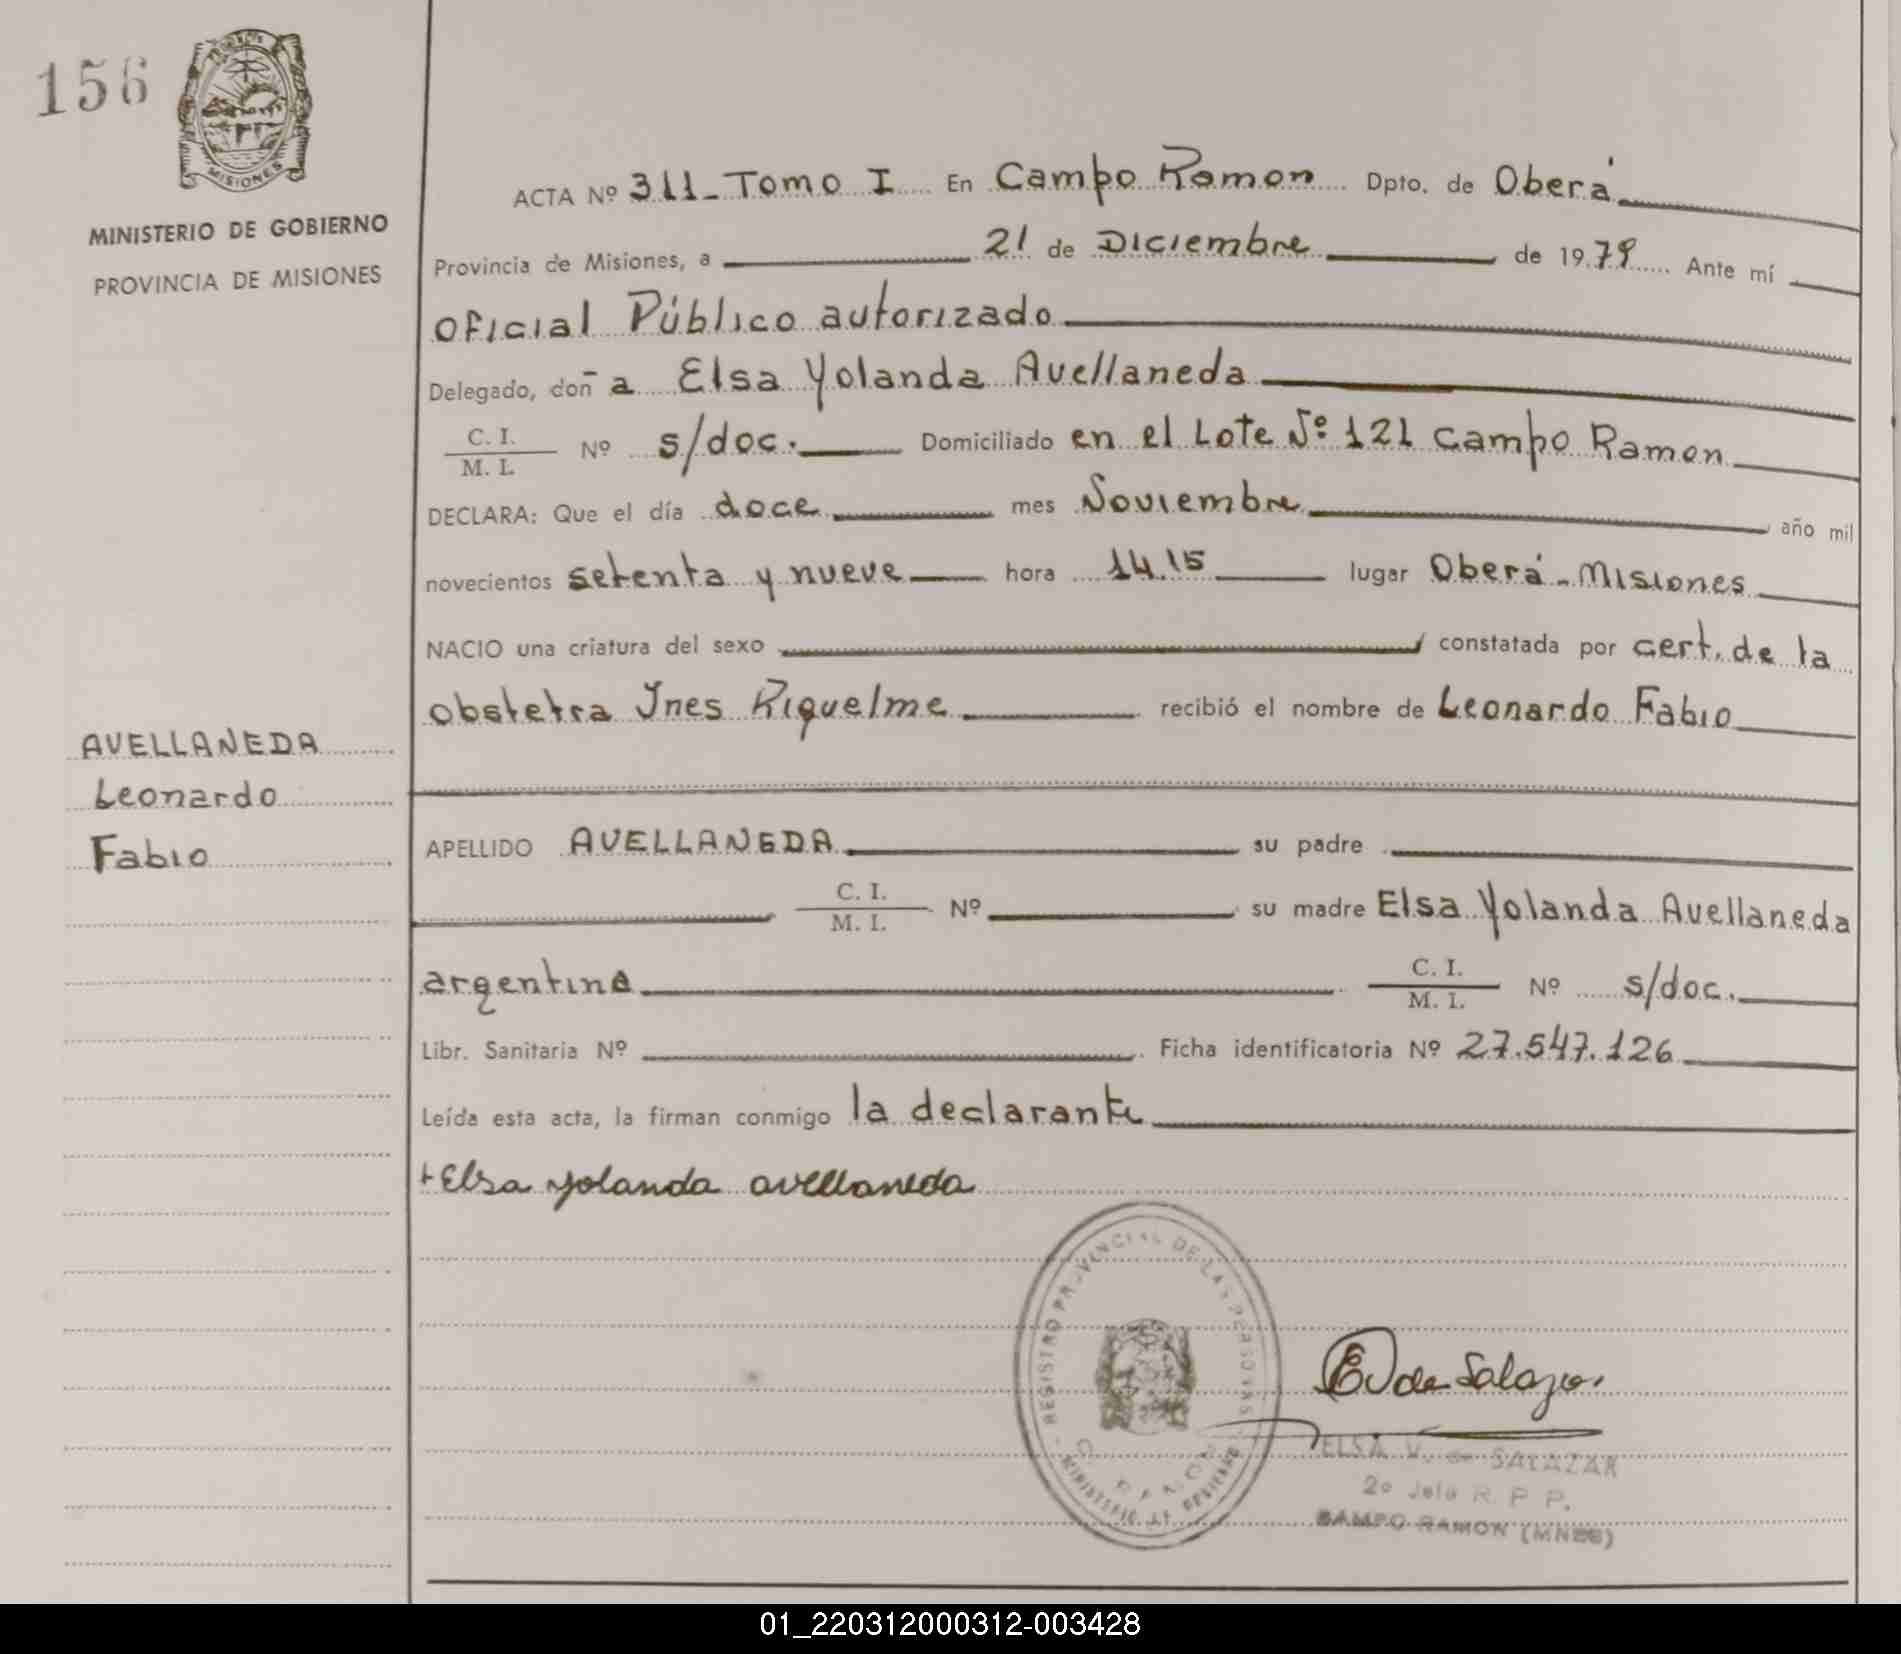 156
PROVINCIA
MISIONES
MINISTERIO DE GOBIERNO
PROVINCIA DE MISIONES
ACTA Nº 311_ Tomo I En Campo Ramon Dpto. de Oberá
Provincia de Misiones, a 21 de Diciembre de 1979 Ante mí
oficial Público autorizado
Delegado, doña Elsa Yolanda Avellaneda
C. I. / M. I. Nº s/doc. Domiciliado en el Lote Nº 121 Campo Ramon
DECLARA: Que el día doce mes Noviembre año mil
novecientos setenta y nueve hora 14.15 lugar Oberá - Misiones
NACIO una criatura del sexo constatada por cert. de la
obstetra Ines Riquelme recibió el nombre de Leonardo Fabio
AVELLANEDA
Leonardo
Fabio
APELLIDO AVELLANEDA su padre
C. I. / M. I. Nº su madre Elsa Yolanda Avellaneda
argentina C. I. / M. I. Nº s/doc.
Libr. Sanitaria Nº Ficha identificatoria Nº 27.547.126
Leída esta acta, la firman conmigo la declarante
+ Elsa yolanda avellaneda
REGISTRO PROVINCIAL DE LAS PERSONAS
MINISTERIO DE GOBIERNO
E V de Salazar
ELSA V. de SALAZAR
2º Jefe R. P. P.
CAMPO RAMON (MNES)
01_220312000312-003428